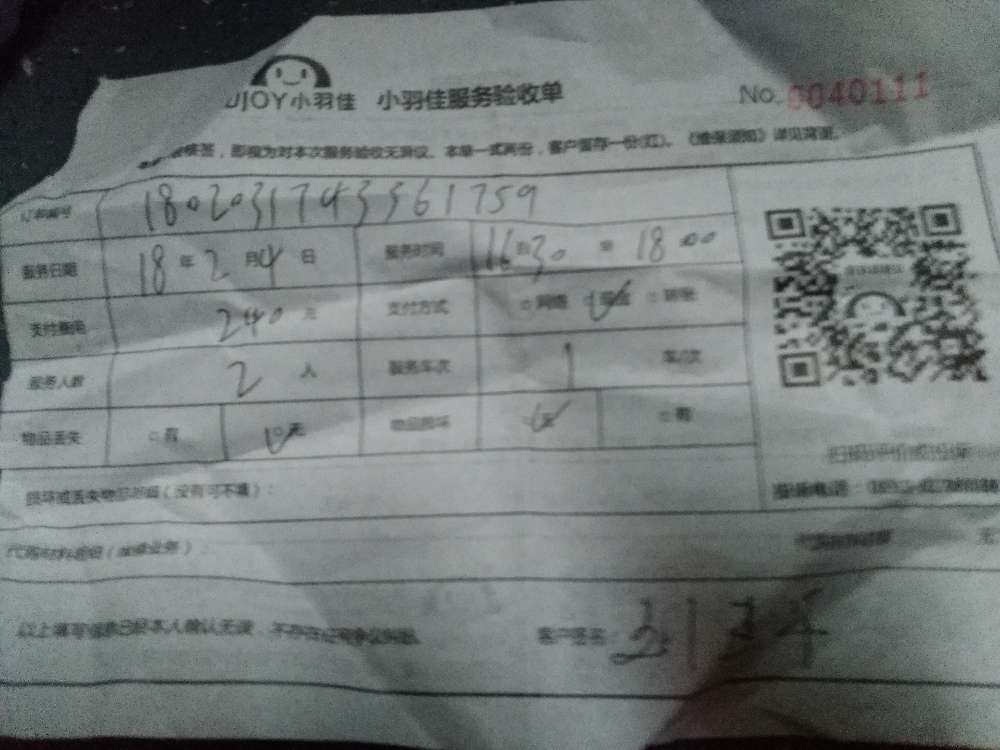 JOY小羽佳 小羽佳服务验收单 No. 0040111
核签，即视为对本次服务验收无异议。本单一式两份，客户留存一份(红)。《维保须知》详见背面。
订单编号 18020317433561759
服务日期 18年2月4日 服务时间 16时30至18 00
支付费用 240元 支付方式 网络 现金 转账
服务人数 2人 服务车次 1 车/次
物品丢失 有 无 物品损坏 无 有
损坏或丢失物品明细（没有可不填）：
以上填写信息已经本人确认无误，不存在任何争议问题。 客户签名：